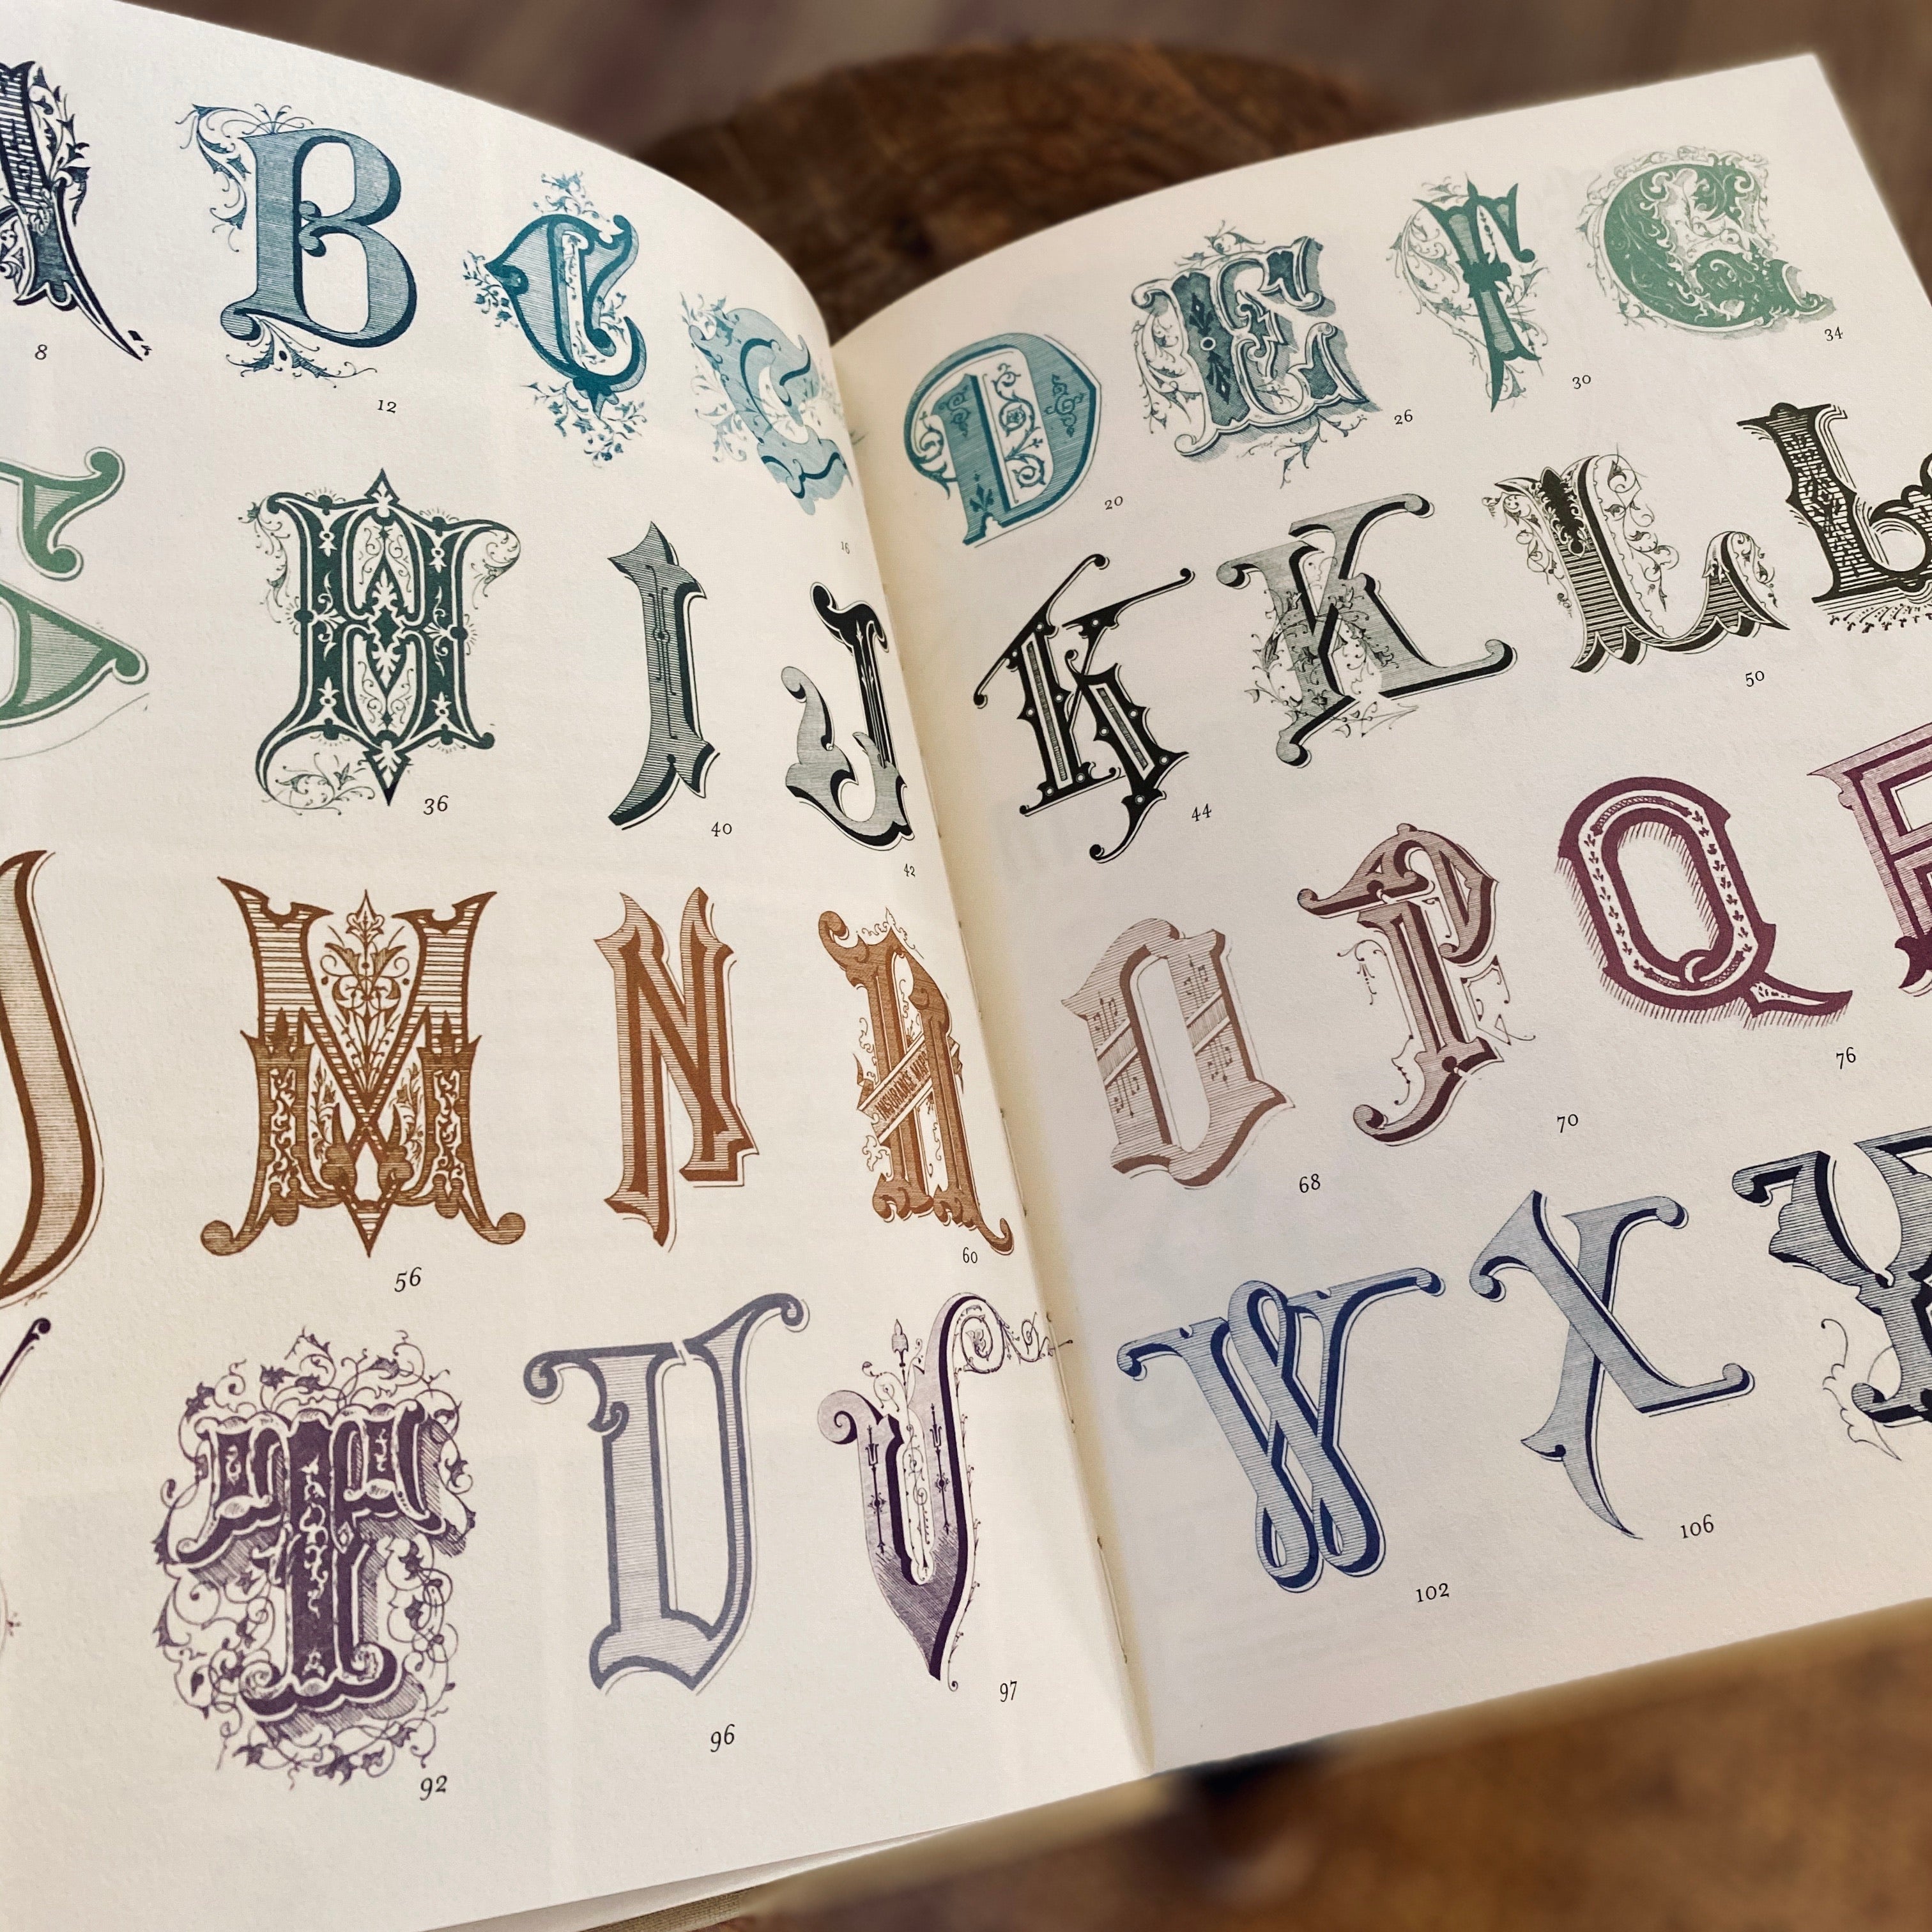 A B C C D E F G
8 12 16 20 26 30 34
G H I J K K L L
36 40 42 44 50
M N N O P Q R
INSURANCE MAPS
56 60 68 70 76
T U V W X Y
92 96 97 102 106